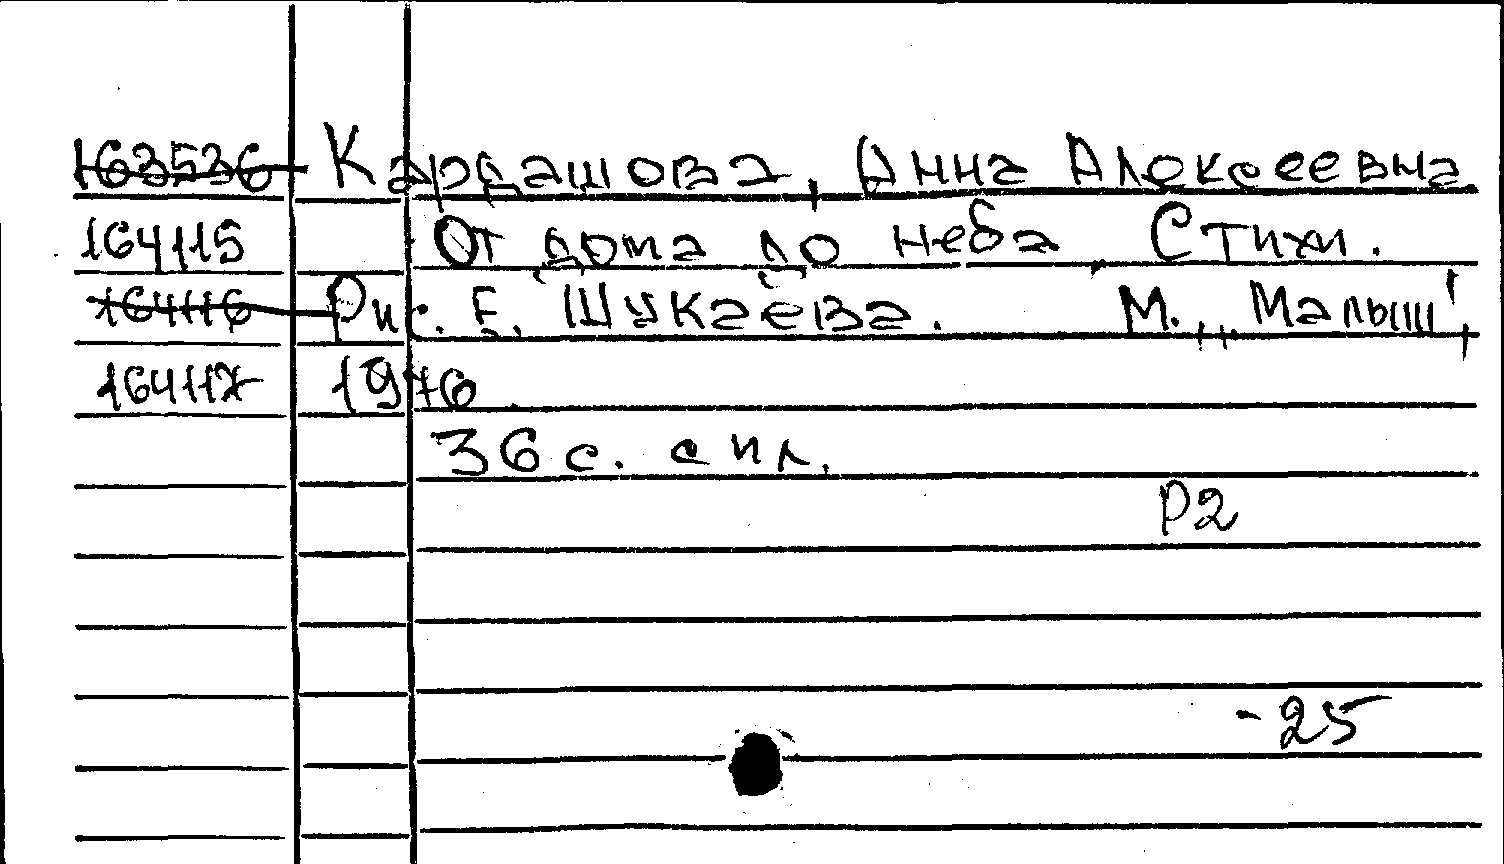 163536 Кардашова, Анна Алексеевна
164115 От дома до неба. Стихи.
164116 Рис. Е. Шукаева. М., „Малыш",
164117 1976
36 с. с ил.
Р2
-25